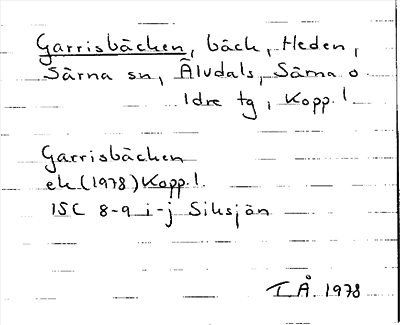 Garrisbäcken, bäck, Heden,
Särna sn, Älvdals, Särna o
Idre tg, Kopp. l
Garrisbäcken
ek (1978) Kopp. l.
15C 8-9 i-j Siksjön
T Å 1978